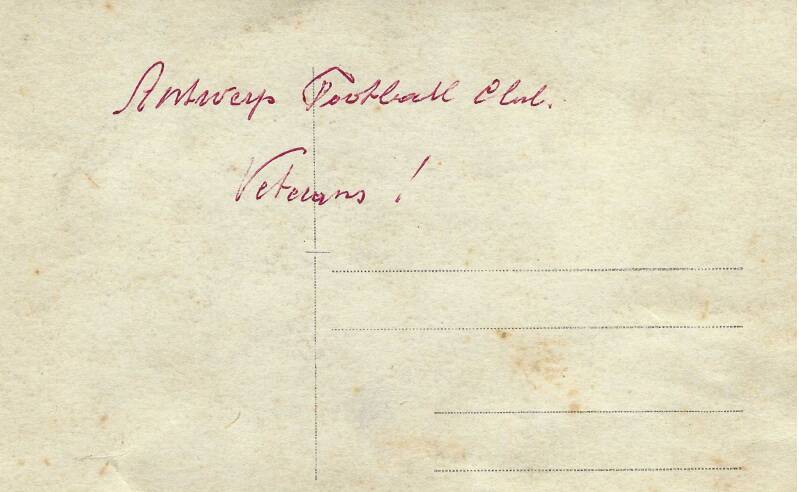 Antwerp Football Club.
Veterans !